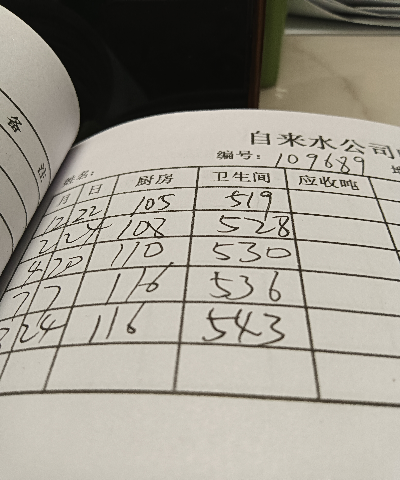 备
自来水公司
编号: 109689
姓名:
月 日 厨房 卫生间 应收吨
12 22 105 519
2 24 108 528
4 20 110 530
7 7 116 536
24 116 543